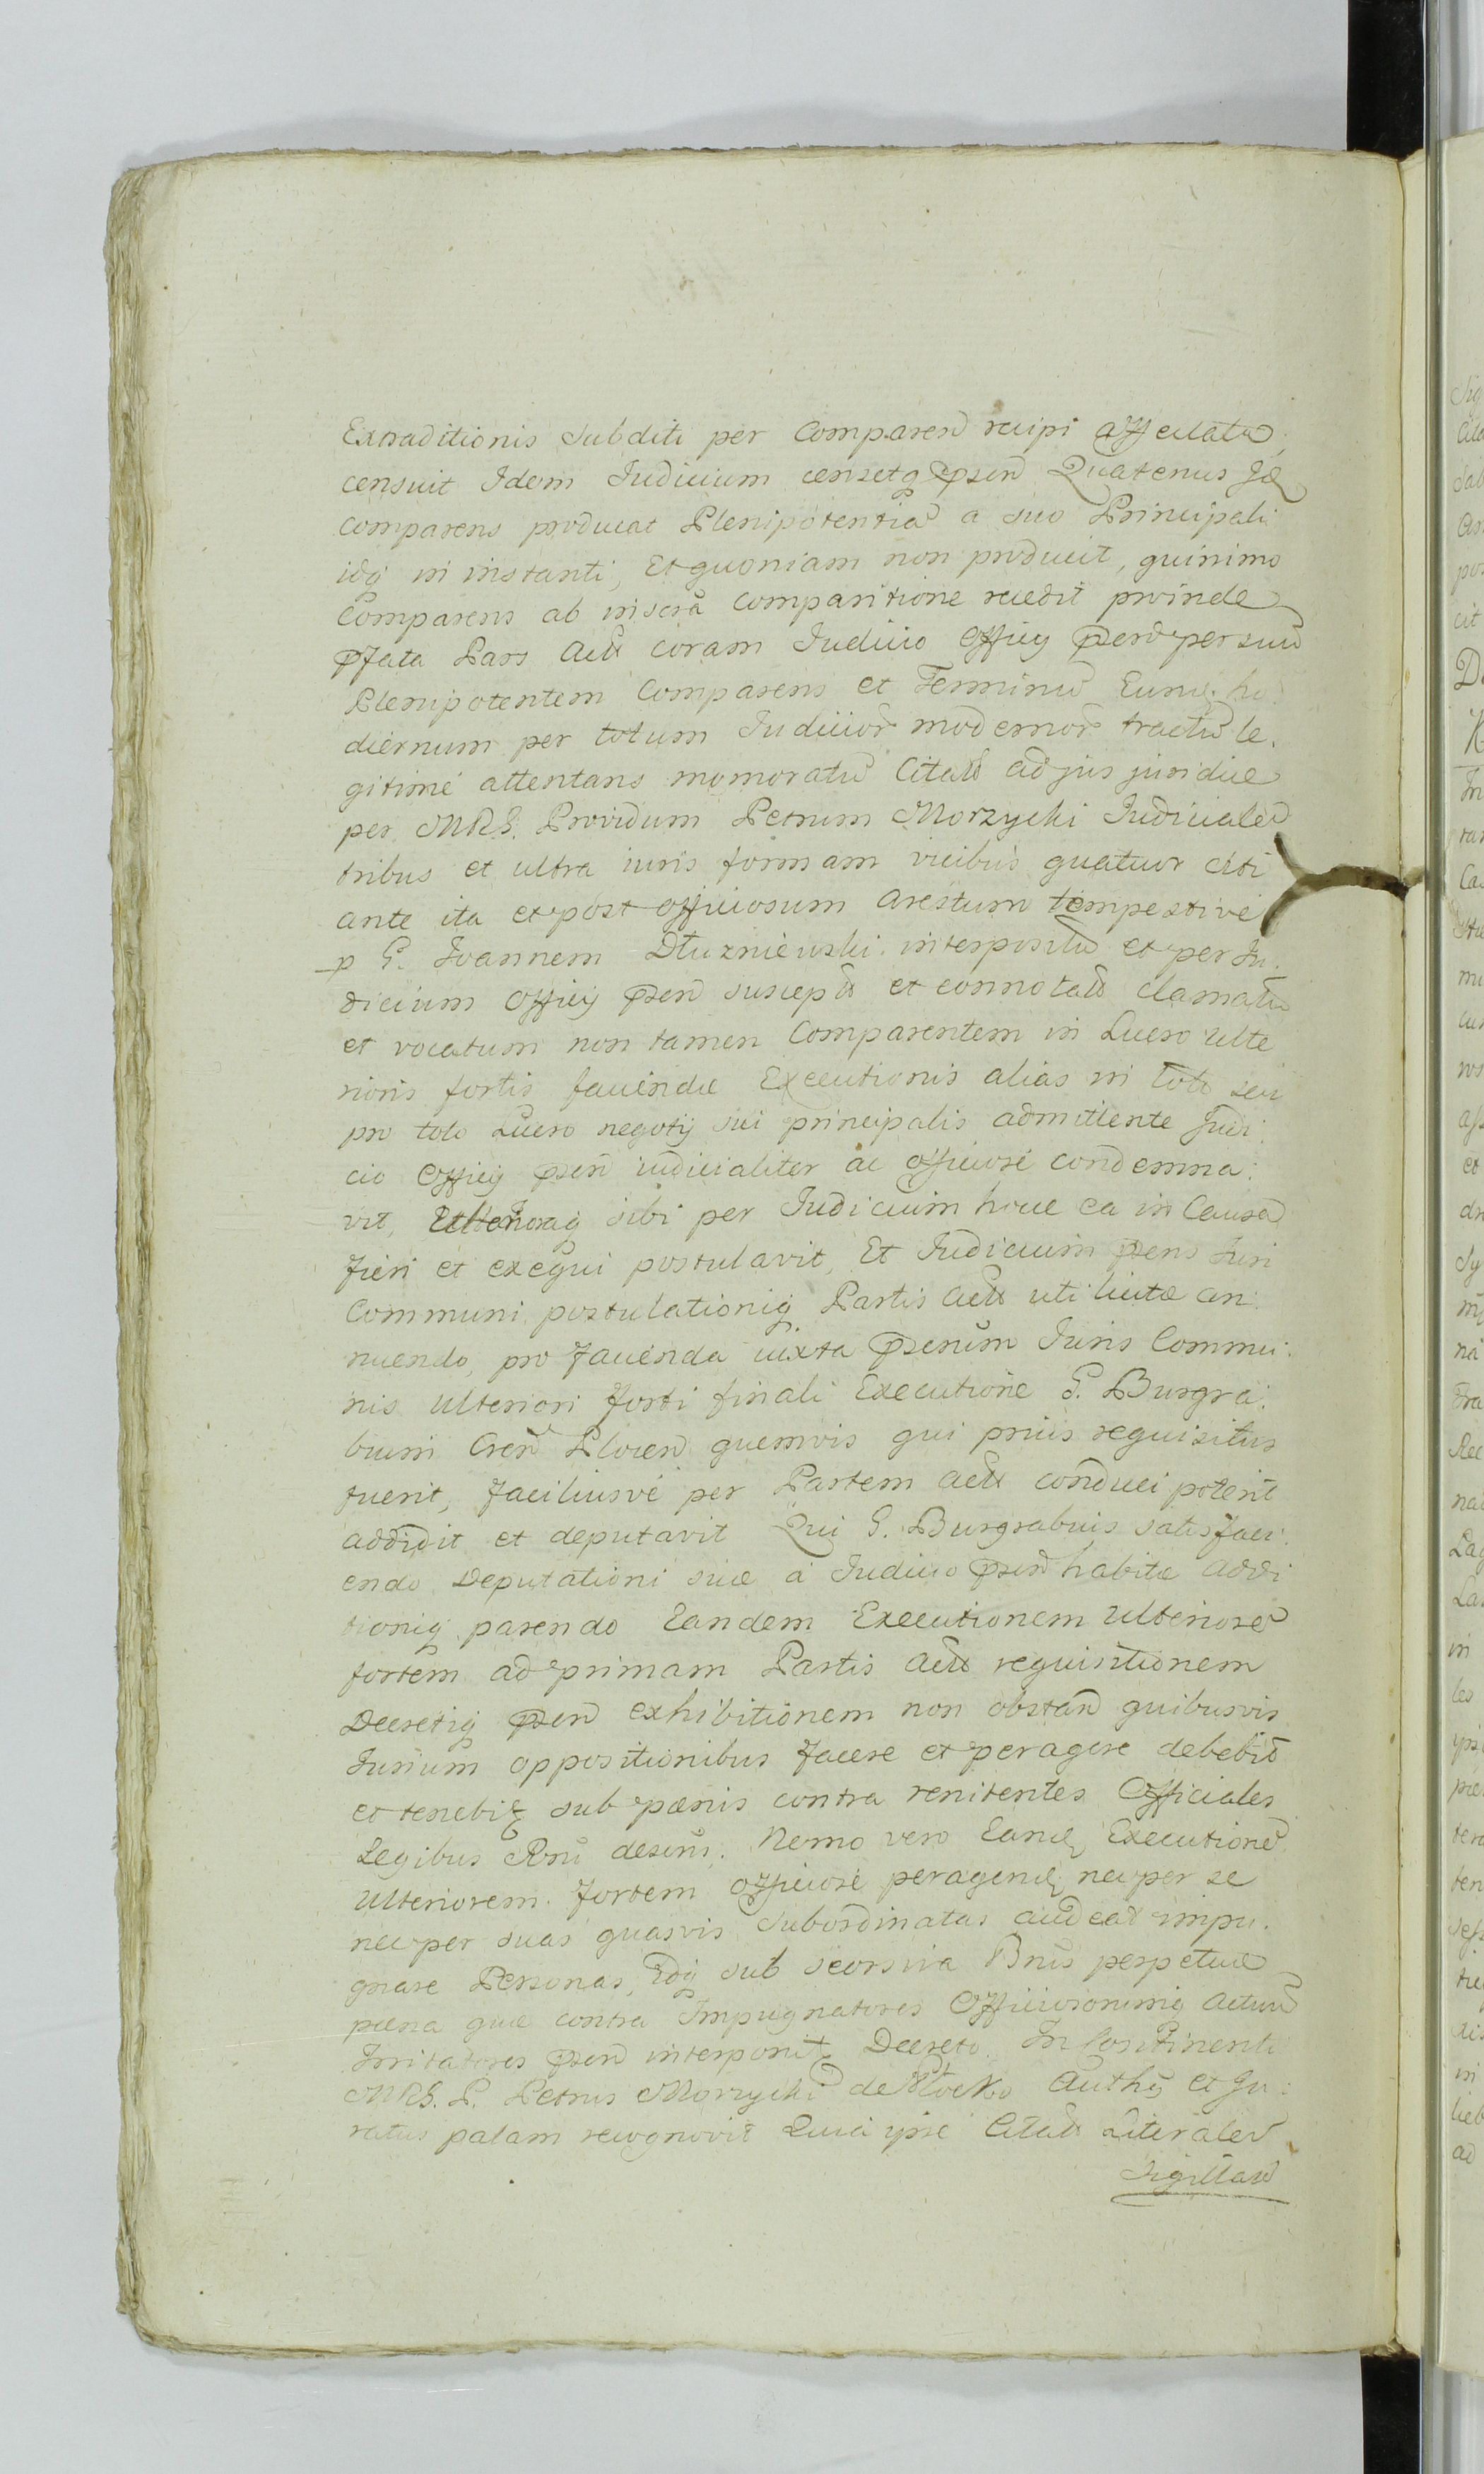 Extraditionis Subditi per Comparen̄ recipi affectatā,
censuit Idem Judicium censetq₃ p̄sen̄ Quatenus Id̄
Comparens producat Plenipotentiā a suo Principali
idq₃ in instanti, Et quoniam non producit, quinimo
Comparens ab inscrā comparitione recedit proinde
p̄fata Pars Act̄ coram Judicio Officij p̄sen̄ per suū
Plenipotentem Comparens et Terminū Eund̄ ho
diernum per totum Judicior̄ modernor̄ tractū le.
gitimè attentans memoratū Citatū ad jus juridice
per MRG. Providum Petrum Morzycki Judicialē
tribus et ultra iuris formam vicibus quatuor citi
ante ita et post officiosum arestum tempestivè
p G. Joannem Dłuzniewski interpositū et per Ju.
dicium Officij p̄sen̄ suscept̄ et connotat̄ clamatū
et vocatum non tamen Comparentem in Lucro Ulte
rioris fortis faciendæ Executionis alias in toto seu
pro toto Lucro negotij sui principalis admittente Judi:
cio Officij p̄sen̄ iudicialiter ac officiosè condemna:
vit, Ulterioraq₃ sibi per Judicium hocce ea in Causa
fieri et exequi postulavit, Et Judicium p̄sens Juri
Communi postulationiq₃ Partis Act̄ uti licitæ an:
nuendo, pro facienda iuxta p̄scrūm Juris Commu:
nis Ulteriori forti finali Executione G. Burgra:
bium Cren̄ Plocen̄ quemvis qui prius requisitus
fuerit, faciliusvè per Partem Act̄ conduci poterit
addidit et deputavit Qui G. Burgrabius satisfaci:
endo Deputationi suæ à Judicio p̄sen̄ habitæ addi
tioniq₃ parendo Eandem Executionem Ulteriorē
fortem ad primam Partis Act̄ requisitionem
Decretiq₃ p̄sen̄ exhibitionem non obstan̄ quibusvis
Jurium oppositionibus facere et peragere debebit
et tenebit₃ sub pœnis contra renitentes Officiales
Legibus Rni descris. Nemo vero Eand̄ Executionē
Ulteriorem fortem officiosè peragend̄ nec per se
nec per suas quasvis Subordinatas audeat impu.
gnare Personas, Idq₃ sub seorsiva Bnis perpetuæ
pœna quæ contra Impugnatores Officiosorumq₃ actuū
Irritatores p̄sen̄ interponit₃ Decreto. In Continenti
MRG. P. Petrus Morzycki de Płocko Authūs et Ju:
ratus palam recognovit Quia ipse Citat̄ Literalē
Sigillatū